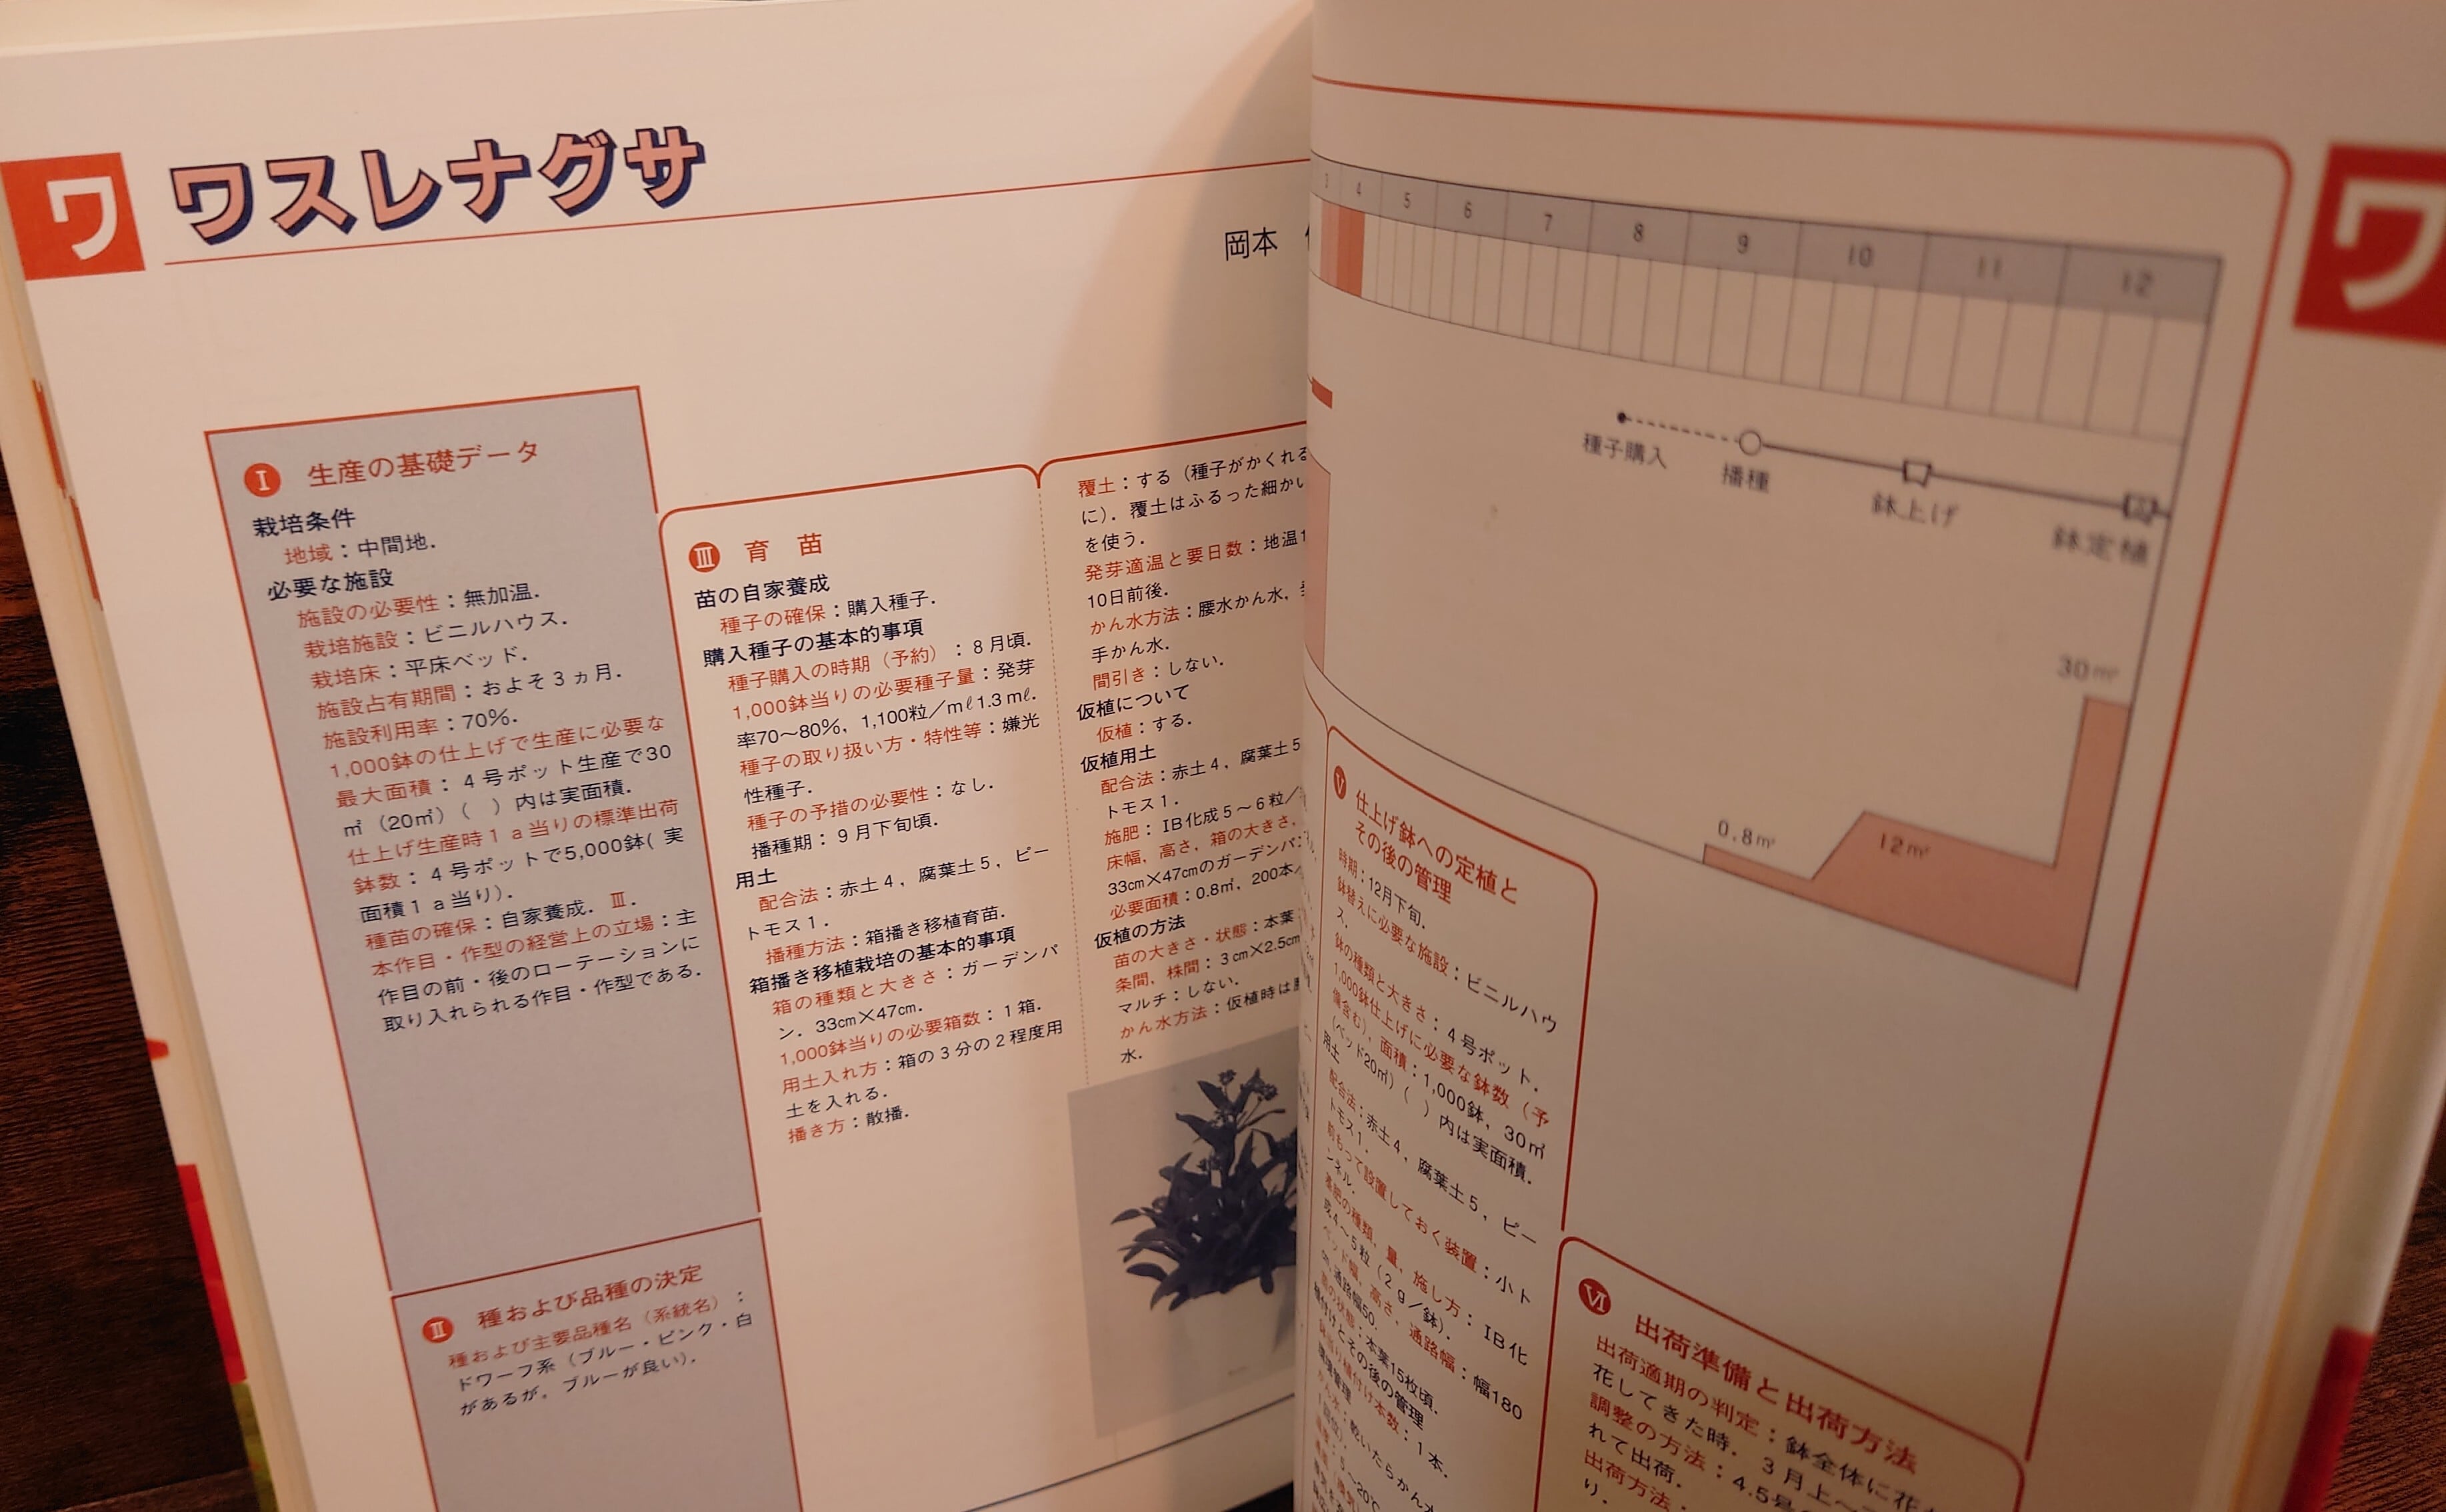 ワ
ワスレナグサ
岡本
Ⅰ 生産の基礎データ
栽培条件
地域：中間地．
必要な施設
施設の必要性：無加温．
栽培施設：ビニルハウス．
栽培床：平床ベッド．
施設占有期間：およそ3ヵ月．
施設利用率：70％．
1,000鉢の仕上げで生産に必要な
最大面積：4号ポット生産で30
㎡（20㎡）（　）内は実面積．
仕上げ生産時1a当りの標準出荷
鉢数：4号ポットで5,000鉢(実
面積1a当り)．
種苗の確保：自家養成．Ⅲ．
本作目・作型の経営上の立場：主
作目の前・後のローテーションに
取り入れられる作目・作型である．
Ⅱ 種および品種の決定
種および主要品種名（系統名）：
ドワーフ系（ブルー・ピンク・白
があるが，ブルーが良い）．
Ⅲ 育　苗
苗の自家養成
種子の確保：購入種子．
購入種子の基本的事項
種子購入の時期（予約）：8月頃．
1,000鉢当りの必要種子量：発芽
率70〜80％，1,100粒／mℓ 1.3mℓ．
種子の取り扱い方・特性等：嫌光
性種子．
種子の予措の必要性：なし．
播種期：9月下旬頃．
用土
配合法：赤土4，腐葉土5，ピー
トモス1．
播種方法：箱播き移植育苗．
箱播き移植栽培の基本的事項
箱の種類と大きさ：ガーデンパ
ン．33㎝×47㎝．
1,000鉢当りの必要箱数：1箱．
用土入れ方：箱の3分の2程度用
土を入れる．
播き方：散播．
覆土：する（種子がかくれる
に）．覆土はふるった細かい
を使う．
発芽適温と要日数：地温
10日前後．
かん水方法：腰水かん水，
手かん水．
間引き：しない．
仮植について
仮植：する．
仮植用土
配合法：赤土4，腐葉土5
トモス1．
施肥：IB化成5〜6粒／
床幅，高さ，箱の大きさ，
33㎝×47㎝のガーデンパ
必要面積：0.8㎡，200本
仮植の方法
苗の大きさ・状態：本葉
条間，株間：3㎝×2.5㎝
マルチ：しない．
かん水方法：仮植時は
水．
3 4 5 6 7 8 9 10 11 12
種子購入
播種
鉢上げ
鉢定植
30㎡
0.8㎡
12㎡
Ⅴ 仕上げ鉢への定植と
その後の管理
時期：12月下旬．
鉢替えに必要な施設：ビニルハウ
ス．
鉢の種類と大きさ：4号ポット．
1,000鉢仕上げに必要な鉢数（予
備含む），面積：1,000鉢，30㎡
（ベッド20㎡）（　）内は実面積．
用土
配合法：赤土4，腐葉土5，ピー
トモス1．
前もって設置しておく装置：小ト
ンネル．
基肥の種類，量，施し方：IB化
成4〜5粒（2g／鉢）．
ベッド幅，高さ，通路幅：幅180
㎝，通路幅50．
苗の状態：本葉15枚頃．
植付けとその後の管理
鉢当り植付け本数：1本．
環境管理
かん水：乾いたらかん水
Ⅵ 出荷準備と出荷方法
出荷適期の判定：鉢全体に花
花してきた時．3月上〜
調整の方法：4.5号
れて出荷．
出荷方法：
り．
ワ